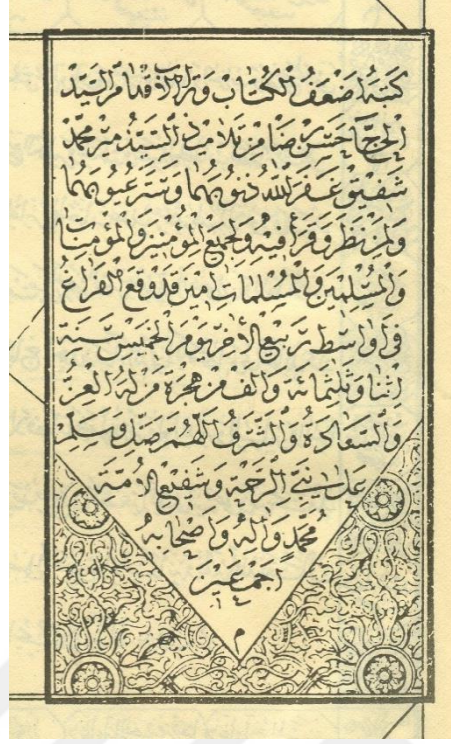 كتبه اضعف الكتاب وتراب الاقدام السيد
الحاج حسن رضا من تلاميذ السيد مير محمد
شفيق غفر الله ذنوبهما وستر عيوبهما
ولمن نظر وقرأ فيه ولجميع المؤمنين والمؤمنات
والمسلمين والمسلمات امين قد وقع الفراغ
في اواسط ربيع الاخر يوم الخميس سنة
اثنا وثلثمائة والف من هجرة من له العز
والسعادة والشرف اللهم صل وسلم
على نبي الرحمة وشفيع الامة
محمد واله واصحابه
اجمعين
م